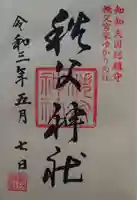 知知夫国総鎮守
秩父宮家ゆかりの社
秩父神社
令和三年五月七日